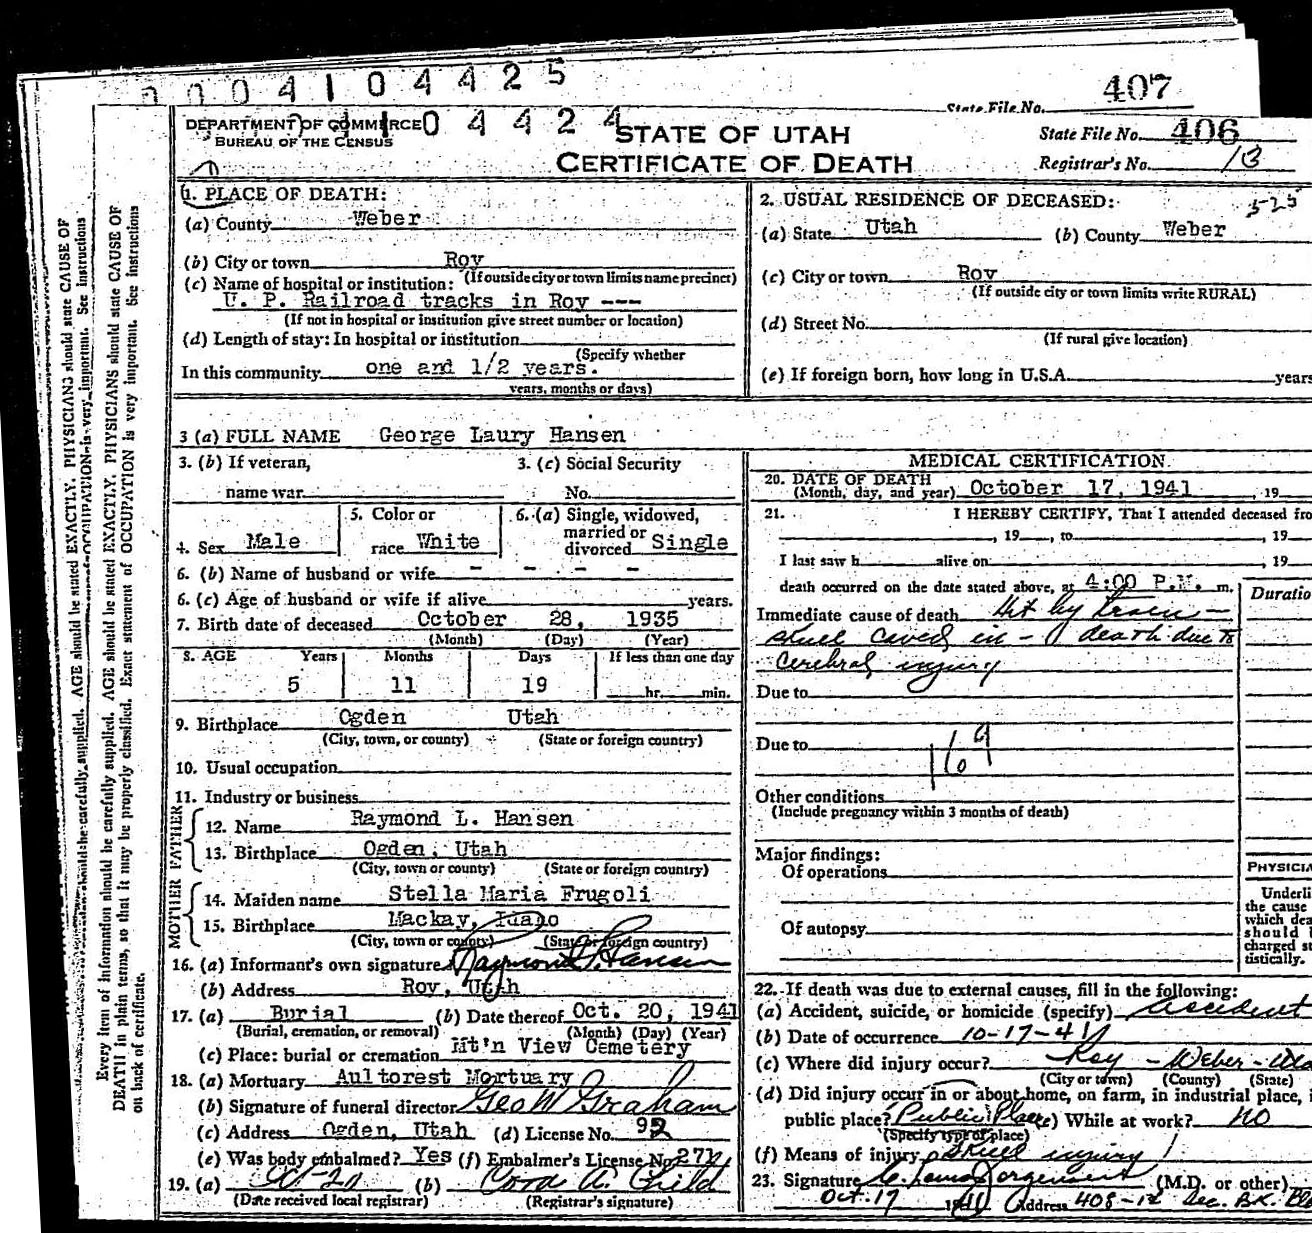 0004104425
407
State File No.
04424
DEPARTMENT OF COMMERCE
BUREAU OF THE CENSUS
STATE OF UTAH
CERTIFICATE OF DEATH
State File No. 406
Registrar's No. 13
1. PLACE OF DEATH:
(a) County Weber
(b) City or town Roy
(If outside city or town limits name precinct)
(c) Name of hospital or institution:
U. P. Railroad tracks in Roy ---
(If not in hospital or institution give street number or location)
(d) Length of stay: In hospital or institution
(Specify whether
In this community one and 1/2 years.
years, months or days)
2. USUAL RESIDENCE OF DECEASED:
(a) State Utah (b) County Weber
(c) City or town Roy
(If outside city or town limits write RURAL)
(d) Street No.
(If rural give location)
(e) If foreign born, how long in U.S.A. years
3 (a) FULL NAME George Laury Hansen
3. (b) If veteran, 3. (c) Social Security
name war No.
4. Sex Male 5. Color or race White 6. (a) Single, widowed, married or divorced Single
6. (b) Name of husband or wife - - - -
6. (c) Age of husband or wife if alive years.
7. Birth date of deceased October 28, 1935
(Month) (Day) (Year)
8. AGE Years Months Days If less than one day
5 11 19 hr. min.
9. Birthplace Ogden Utah
(City, town, or county) (State or foreign country)
10. Usual occupation
11. Industry or business
FATHER
12. Name Raymond L. Hansen
13. Birthplace Ogden, Utah
(City, town or county) (State or foreign country)
MOTHER
14. Maiden name Stella Maria Frugoli
15. Birthplace Mackay, Idaho
(City, town or county) (State or foreign country)
16. (a) Informant's own signature Raymond L. Hansen
(b) Address Roy, Utah
17. (a) Burial (b) Date thereof Oct. 20, 1941
(Burial, cremation, or removal) (Month) (Day) (Year)
(c) Place: burial or cremation Mt'n View Cemetery
18. (a) Mortuary Aultorest Mortuary
(b) Signature of funeral director Geo W Graham
(c) Address Ogden, Utah (d) License No. 92
(e) Was body embalmed? Yes (f) Embalmer's License No. 271
19. (a) (b) Cora A. Child
(Date received local registrar) (Registrar's signature)
MEDICAL CERTIFICATION
20. DATE OF DEATH
(Month, day, and year) October 17, 1941, 19
21. I HEREBY CERTIFY, That I attended deceased fro
, 19 , to , 19
I last saw h alive on , 19
death occurred on the date stated above, at 4:00 P.M. m.
Duratio
Immediate cause of death Hit by train -
skull caved in - death due to
cerebral injury
Due to
Due to
169
Other conditions
(Include pregnancy within 3 months of death)
Major findings:
Of operations
Of autopsy
PHYSICIA
Underli
the cause
which dea
should b
charged st
tistically.
22. If death was due to external causes, fill in the following:
(a) Accident, suicide, or homicide (specify) Accident
(b) Date of occurrence 10-17-41
(c) Where did injury occur? Roy - Weber - Uta
(City or town) (County) (State)
(d) Did injury occur in or about home, on farm, in industrial place, i
public place? Public Place While at work? no
(Specify type of place)
(f) Means of injury Skull injury
23. Signature (M.D. or other)
Oct. 17 1941 Address 408-12 Sec. BK. Bl
Every item of information should be carefully supplied. AGE should be stated EXACTLY. PHYSICIANS should state CAUSE OF
DEATH in plain terms, so that it may be properly classified. Exact statement of OCCUPATION is very important. See instructions
on back of certificate.